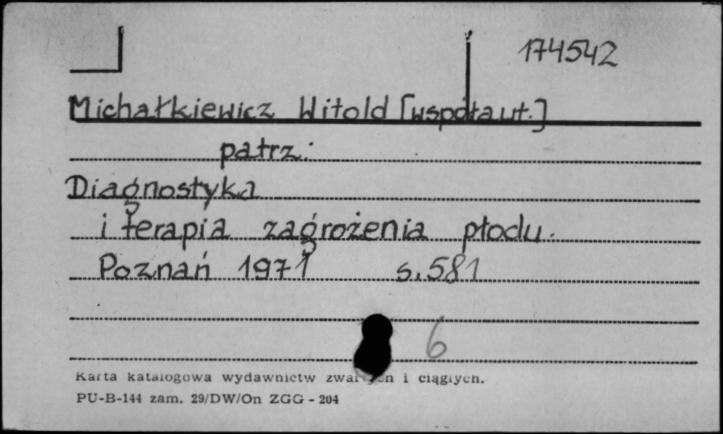 174542
Michałkiewicz Witold [współaut.]
patrz:
Diagnostyka
i terapia zagrożenia płodu.
Poznań 1971 s. 581
6
Karta katalogowa wydawnictw zwartych i ciągłych.
PU-B-144 zam. 29/DW/On ZGG - 204